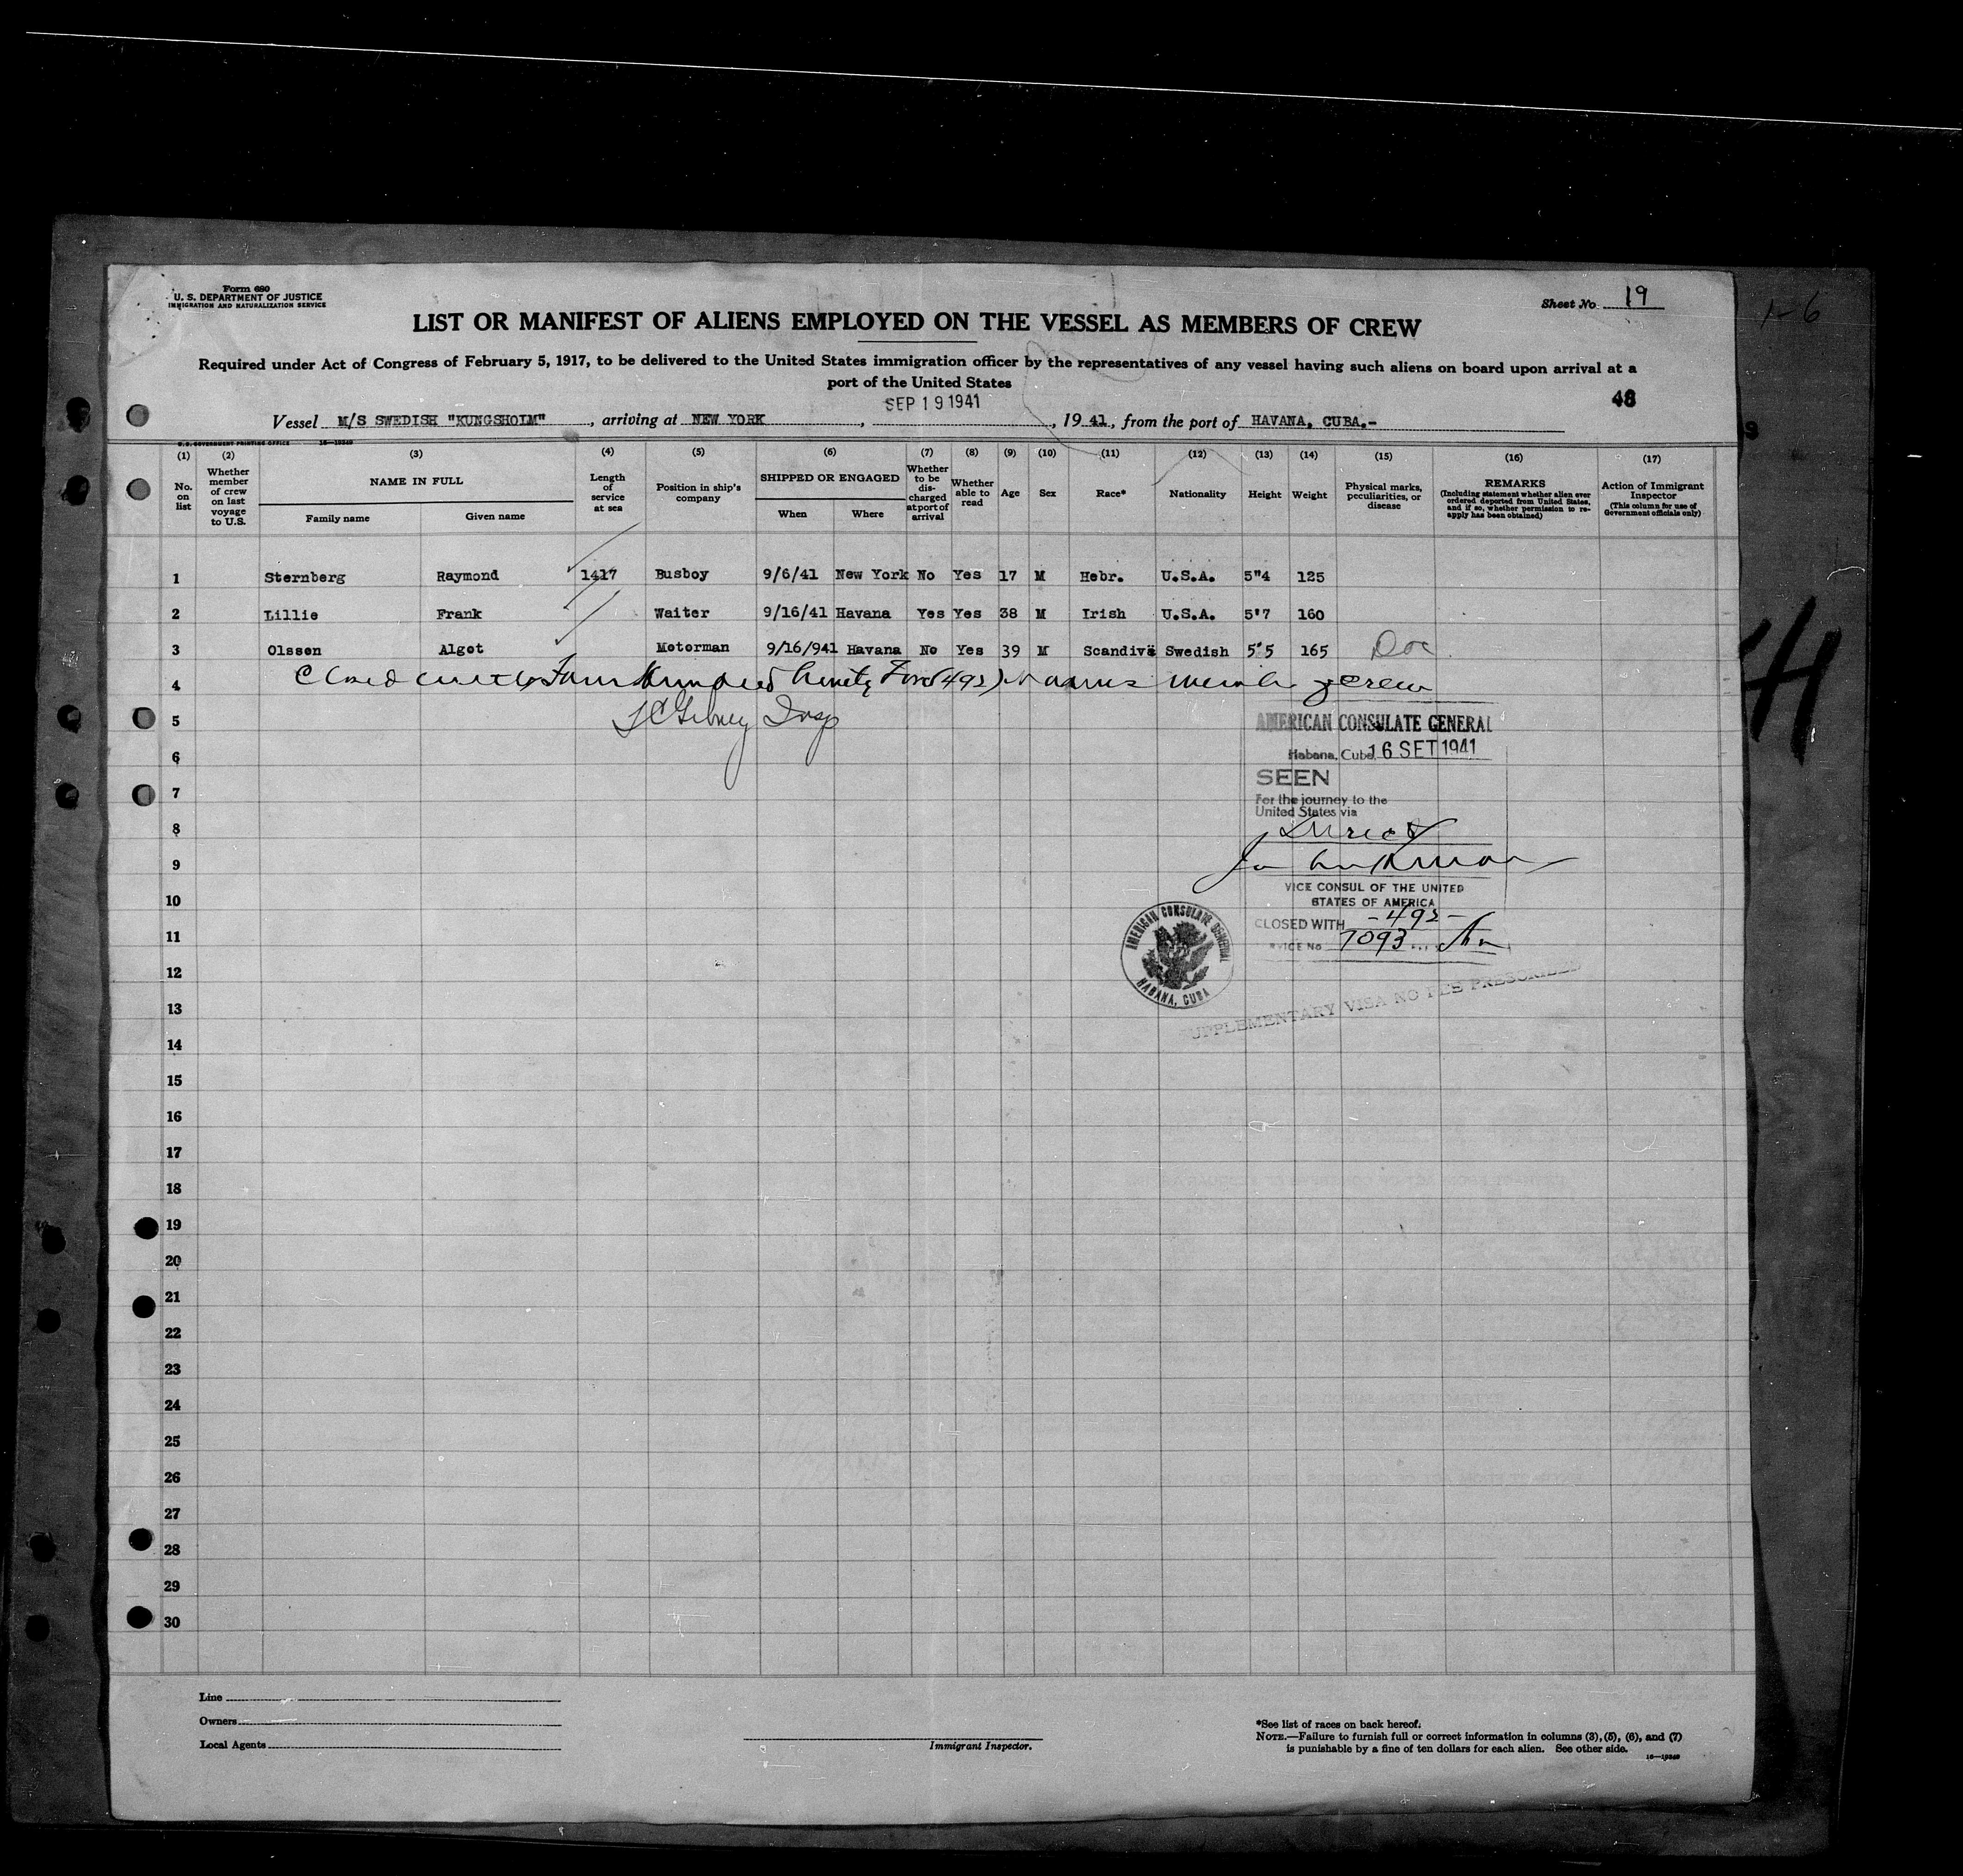 Form 680
U. S. DEPARTMENT OF JUSTICE
IMMIGRATION AND NATURALIZATION SERVICE
Sheet No. 19
1-6
LIST OR MANIFEST OF ALIENS EMPLOYED ON THE VESSEL AS MEMBERS OF CREW
Required under Act of Congress of February 5, 1917, to be delivered to the United States immigration officer by the representatives of any vessel having such aliens on board upon arrival at a
port of the United States
SEP 19 1941
48
Vessel M/S SWEDISH "KUNGSHOLM", arriving at NEW YORK, , 1941, from the port of HAVANA, CUBA.-
U.S. GOVERNMENT PRINTING OFFICE 16—19349
(1) (2) (3) (4) (5) (6) (7) (8) (9) (10) (11) (12) (13) (14) (15) (16) (17)
No. on list
Whether member of crew on last voyage to U.S.
NAME IN FULL
Family name Given name
Length of service at sea
Position in ship's company
SHIPPED OR ENGAGED
When Where
Whether to be discharged at port of arrival
Whether able to read
Age
Sex
Race*
Nationality
Height
Weight
Physical marks, peculiarities, or disease
REMARKS
(Including statement whether alien ever ordered deported from United States, and if so, whether permission to re-apply has been obtained)
Action of Immigrant Inspector
(This column for use of Government officials only)
1 Sternberg Raymond 1417 Busboy 9/6/41 New York No Yes 17 M Hebr. U.S.A. 5"4 125
2 Lillie Frank Waiter 9/16/41 Havana Yes Yes 38 M Irish U.S.A. 5'7 160
3 Olssen Algot Motorman 9/16/941 Havana No Yes 39 M Scandiva Swedish 5'5 165 Doc
4 Closed with Four Hundred Ninety Two (492) names member of crew
5
Insp
AMERICAN CONSULATE GENERAL
Habana, Cuba 16 SET 1941
6
SEEN
7
For the journey to the
United States via
8 Direct
9
VICE CONSUL OF THE UNITED
STATES OF AMERICA
10
CLOSED WITH -492-
11
SERVICE No 7093
AMERICAN CONSULATE GENERAL
HABANA, CUBA
12
SUPPLEMENTARY VISA NO FEE PRESCRIBED
13
14
15
16
17
18
19
20
21
22
23
24
25
26
27
28
29
30
Line
Owners
Local Agents
Immigrant Inspector.
*See list of races on back hereof.
NOTE.—Failure to furnish full or correct information in columns (3), (5), (6), and (7)
is punishable by a fine of ten dollars for each alien. See other side.
16—19349